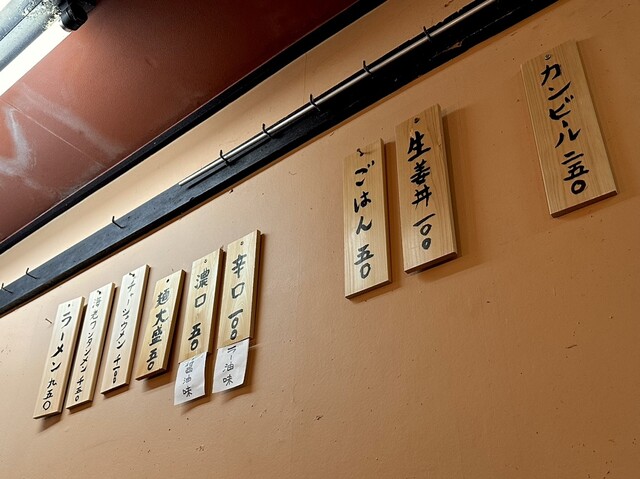 カンビール 二五〇
生姜丼 一〇〇
ごはん 五〇
辛口 一〇〇
ラー油味
濃口 五〇
醤油味
麺大盛 五〇
チャーシュウメン 千一〇〇
ワンタンメン 千五〇
ラーメン 九五〇